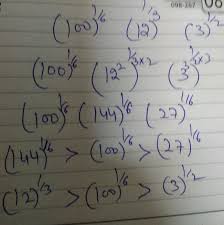 (100)^1/6 (12)^1/3 (3)^1/2
(100)^1/6 (12²)^1/3×2 (3³)^1/3×2
(100)^1/6 (144)^1/6 (27)^1/6
(144)^1/6 > (100)^1/6 > (27)^1/6
(12)^1/3 > (100)^1/6 > (3)^1/2